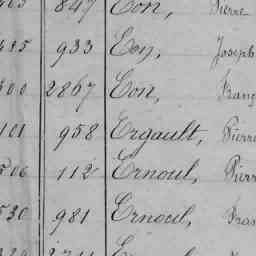 847 Eon, Pierre
933 Eon, Joseph
2867 Eon, Franç
958 Ergault, Pierre
112 Ernoul, Pierr
530 981 Ernoul, Fran